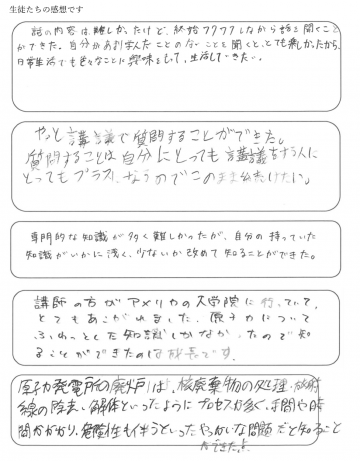 生徒たちの感想です
話の内容は難しかったけど、終始ワクワクしながら話を聞くこと
ができた。自分があまり学んだことのないことを聞くと、とても楽しかったから、
日常生活でも色々なことに興味をもって、生活していきたい。
やっと講義で質問することができた。
質問することは自分にとっても講義をする人に
とってもプラスになるのでこのまま続けたい。
専門的な知識が多く難しかったが、自分の持っていた
知識がいかに浅く、少ないか改めて知ることができた。
講師の方がアメリカの大学院に行っていて、
とてもあこがれました。原子力について
ふわっとした知識しかなかったので知
ることができたのは成長です。
原子力発電所の廃炉は、核廃棄物の処理、放射
線の除去、解体といったようにプロセスが多く、手間や時
間がかかり、危険性も伴うといったやっかいな問題だと知ること
ができた。